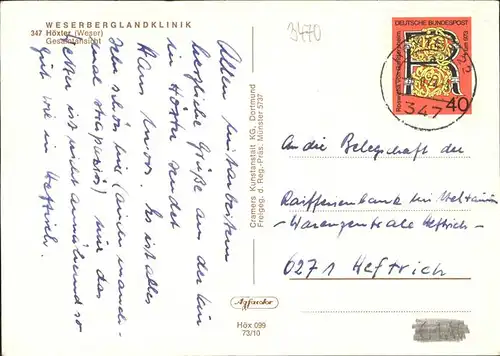 WESERBERGLANDKLINIK
347 Höxter (Weser)
Gesamtansicht
3470
Allen Mitarbeitern
herzliche Grüße aus der
in Höxter sendet
Hans Es ist alles
sehr schön hier (auch manch-
mal strapaziös) nur das
Wetter ist nicht annähernd so
gut wie in Heftrich.
Cramers Kunstanstalt KG, Dortmund
Freigeg. d. Reg.-Präs. Münster 5737
Agfacolor
Höx 099
73/10
DEUTSCHE BUNDESPOST
Roswitha von Gandersheim
40
347
An die Belegschaft der
Raiffeisenbank im
- Warenzentrale Heftrich -
6271 Heftrich